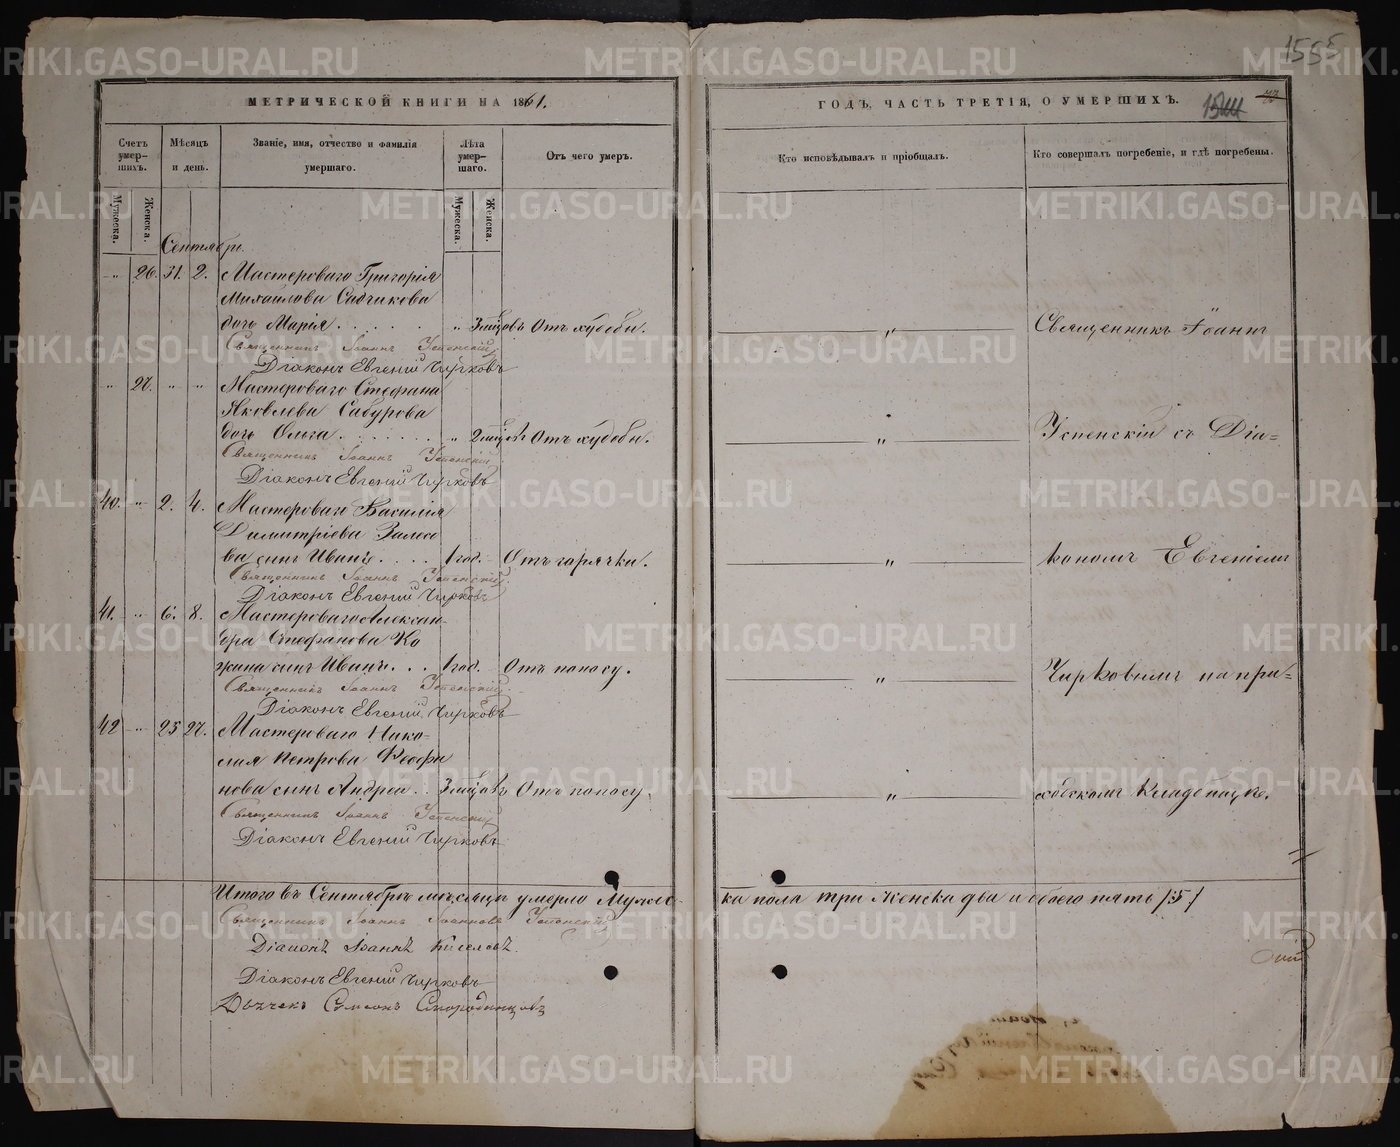 1555
МЕТРИЧЕСКОЙ КНИГИ НА 1861.
ГОДЪ, ЧАСТЬ ТРЕТІЯ, О УМЕРШИХЪ.
Счетъ умер-шихъ.
Мужеска.
Женска.
Мѣсяцъ и день.
Званіе, имя, отчество и фамилія умершаго.
Лѣта умер-шаго.
Мужеска.
Женска.
Отъ чего умеръ.
Кто исповѣдывалъ и пріобщалъ.
Кто совершалъ погребеніе, и гдѣ погребены.
Сентябрь.
„ 26. 31. 2. Мастероваго Григорія
Михайлова Садчикова
дочь Марія . . . . . „ 3 мѣсцовъ Отъ худобы. „ Священникъ Іоаннъ
Священникъ Іоаннъ Успенскій
Діаконъ Евгеній Чирковъ
„ 27. „ „ Мастероваго Стефана
Яковлева Сабурова
дочь Ольга . . . . . „ Отъ худобы. „ Успенскій съ Діа=
Священникъ Іоаннъ Успенскій
Діаконъ Евгеній Чирковъ
40. „ 2. 4. Мастероваго Василія
Димитріева Залесо
ва сынъ Иванъ . . . . 1 год. Отъ горячки. „ кономъ Евгеніемъ
Священникъ Іоаннъ Успенскій
Діаконъ Евгеній Чирковъ
41. „ 6. 8. Мастероваго Алексан-
дра Стефанова Ко
жина сынъ Иванъ . . . 1 год. Отъ поносу. „ Чирковымъ на при=
Священникъ Іоаннъ Успенскій
Діаконъ Евгеній Чирковъ
42 „ 25 27. Мастероваго Нико-
лая Петрова Феофи
нова сынъ Андрей . . 3 Отъ поносу. „ ходскомъ Кладбищѣ.
Священникъ Іоаннъ Успенскій
Діаконъ Евгеній Чирковъ
Итого въ Сентябрѣ мѣсяцѣ умерло Мужес- ка пола три Женска два и обоего пять /5/
Священникъ Іоаннъ Іоанновъ Успенскій
Діаконъ Іоаннъ Киселевъ
Діаконъ Евгеній Чирковъ
Дьячекъ Сумеонъ Смородинцовъ
METRIKI.GASO-URAL.RU